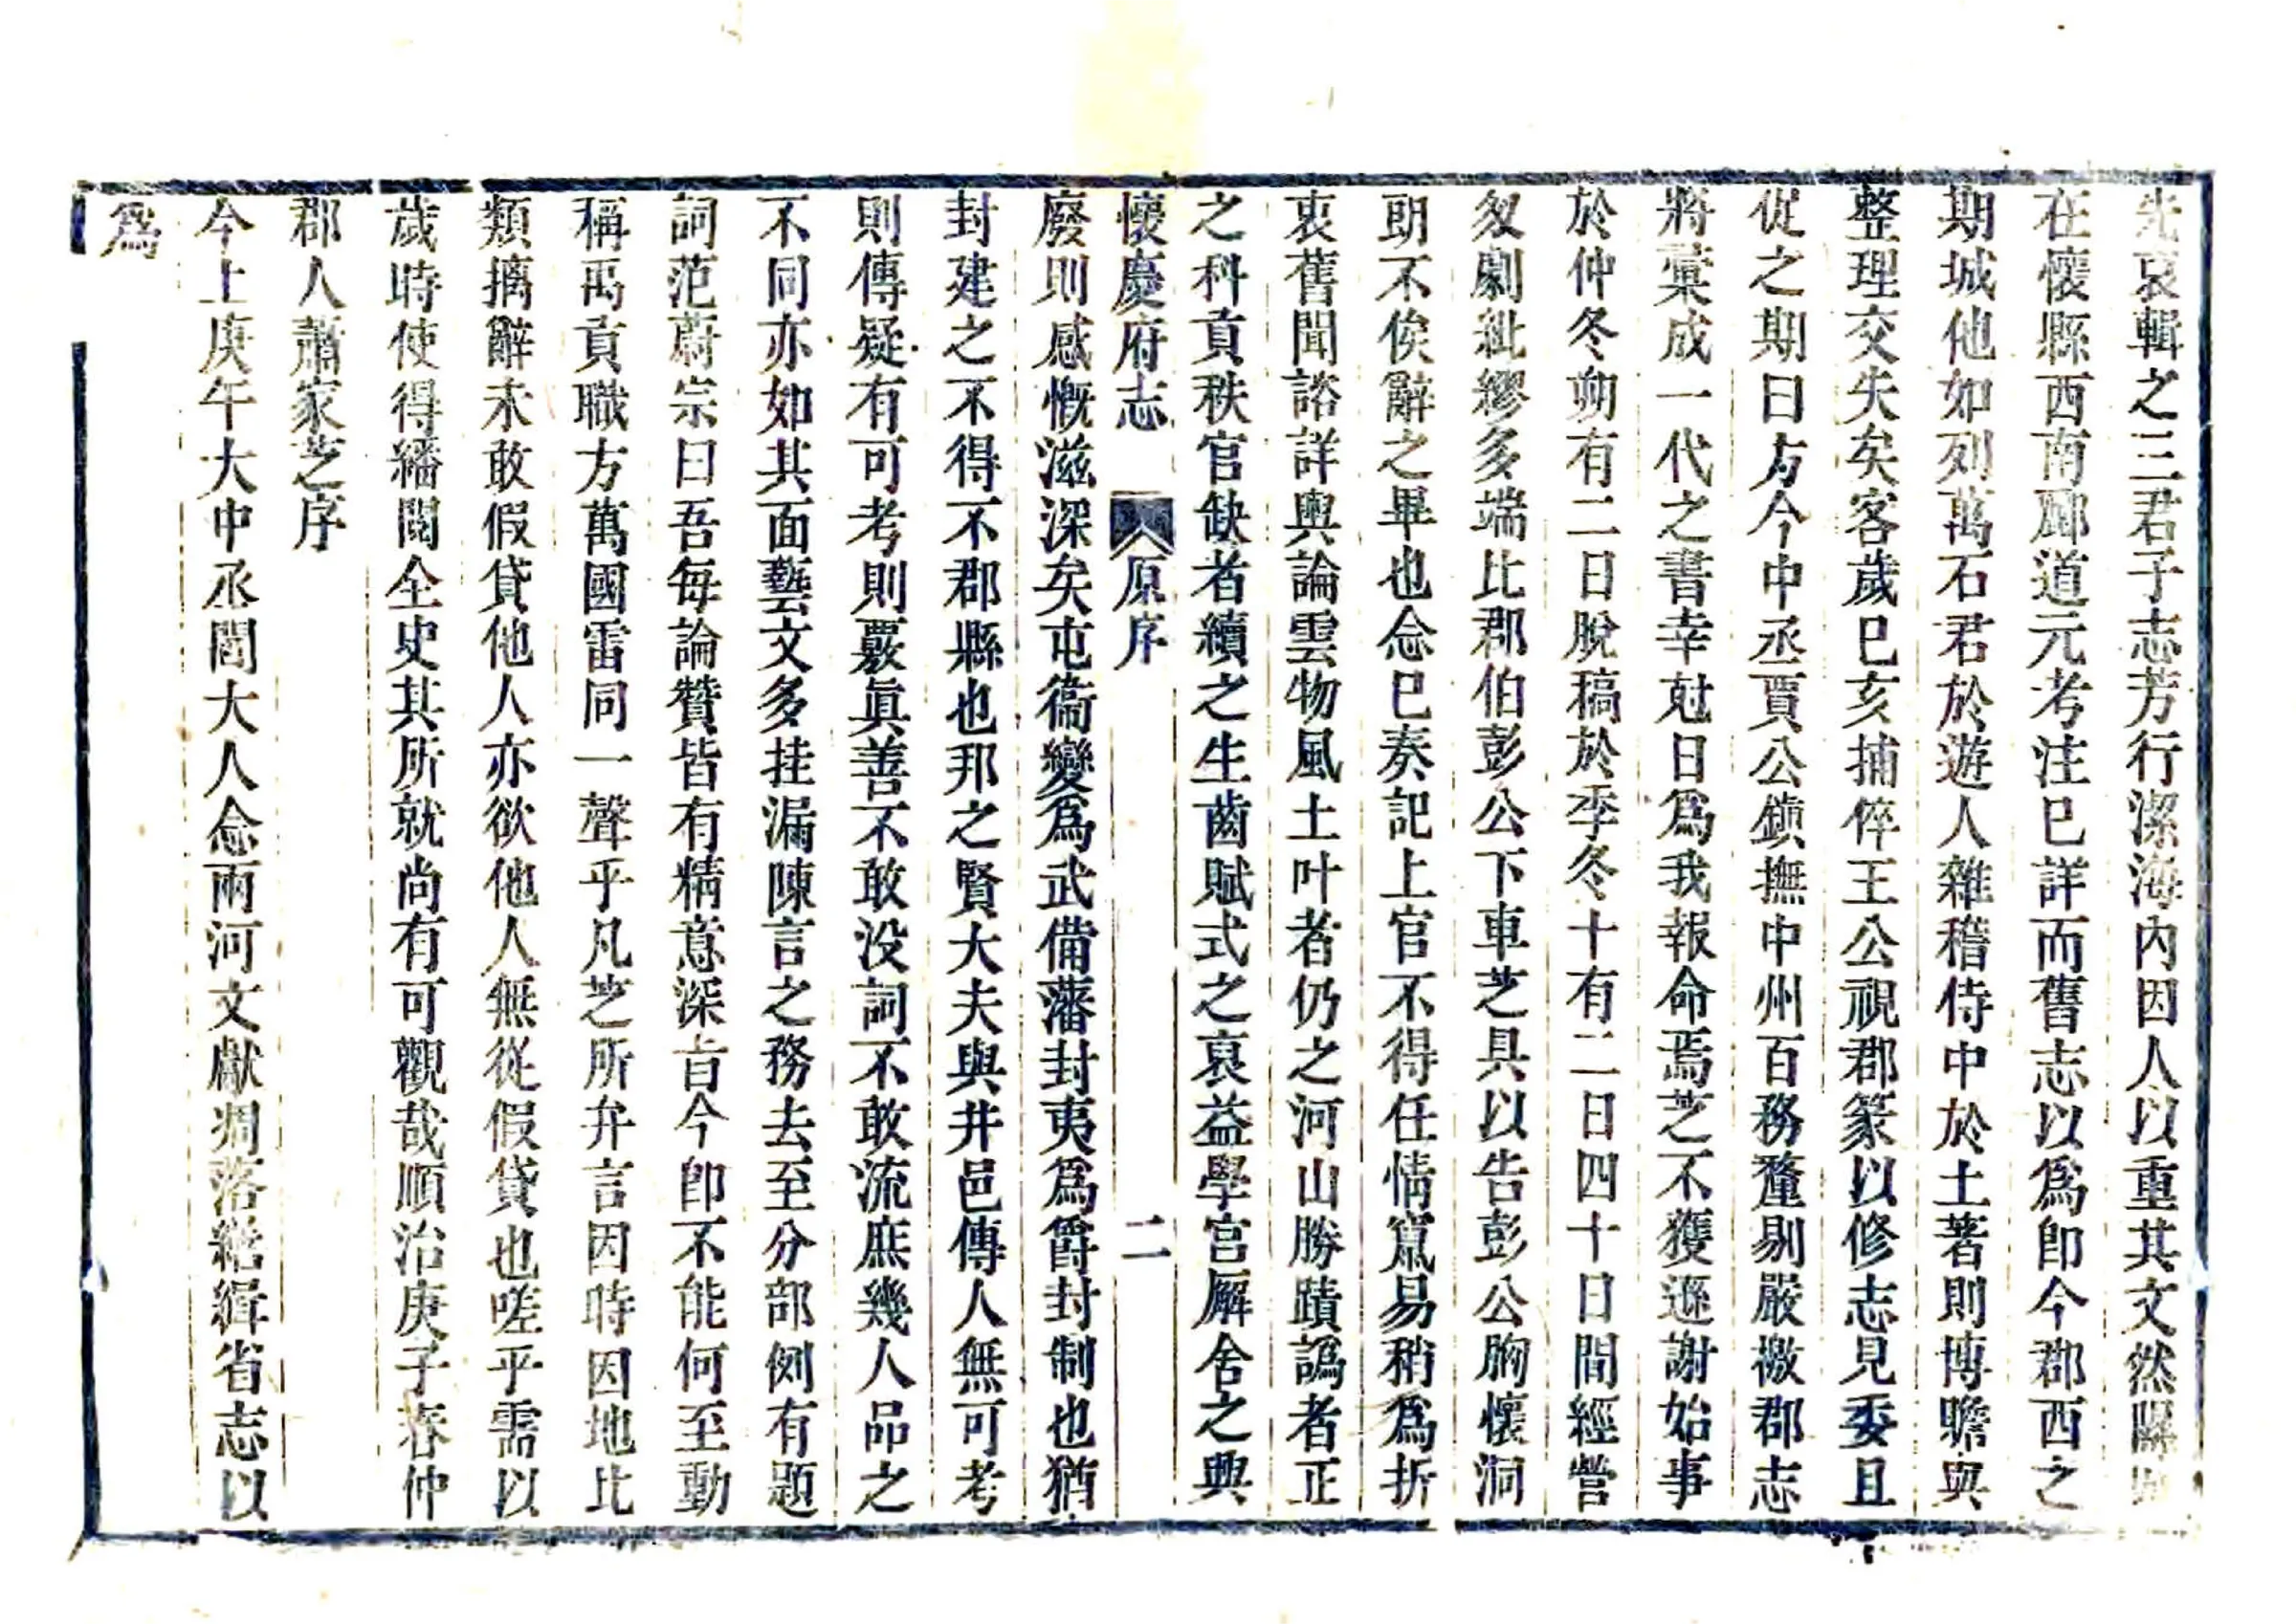 先裒輯之三君子志芳行潔海內因人以重其文然隰
在懷縣西南酈道元考注已詳而舊志以爲卽今郡西之
期城他如列萬石君於遊人雜稽侍中於土著則博瞻與
整理交失矣客歲已亥捕倅王公視郡篆以修志見委且
促之期曰方今中丞賈公鎮撫中州百務釐剔嚴檄郡志
將彙成一代之書幸尅日爲我報命焉芝不獲遜謝始事
於仲冬朔有二日脫稿於季冬十有二日四十日間經營
匆劇紕繆多端比郡伯彭公下車芝具以告彭公胸懷洞
朗不俟辭之畢也念已奏記上官不得任情竄易稍爲折
衷舊聞諮詳輿論雲物風土叶者仍之河山勝蹟譌者正
之科貢秩官缺者續之生齒賦式之裒益學宮廨舍之興
懷慶府志 原序 二
廢則感慨滋深矣屯衞變爲武備藩封夷爲爵封制也猶
封建之不得不郡縣也邦之賢大夫與井邑傳人無可考
則傳疑有可考則覈眞善不敢没詞不敢流庶幾人品之
不同亦如其面藝文多挂漏陳言之務去至分部例有題
詞范蔚宗曰吾每論贊皆有精意深旨今卽不能何至動
稱禹貢職方萬國雷同一聲乎凡芝所弁言因時因地比
類摛辭未敢假貸他人亦欲他人無從假貸也嗟乎需以
歲時使得繙閱全史其所就尚有可觀哉順治庚子春仲
郡人蕭家芝序
今上庚午大中丞閻大人念兩河文獻凋落綹緝省志以
爲